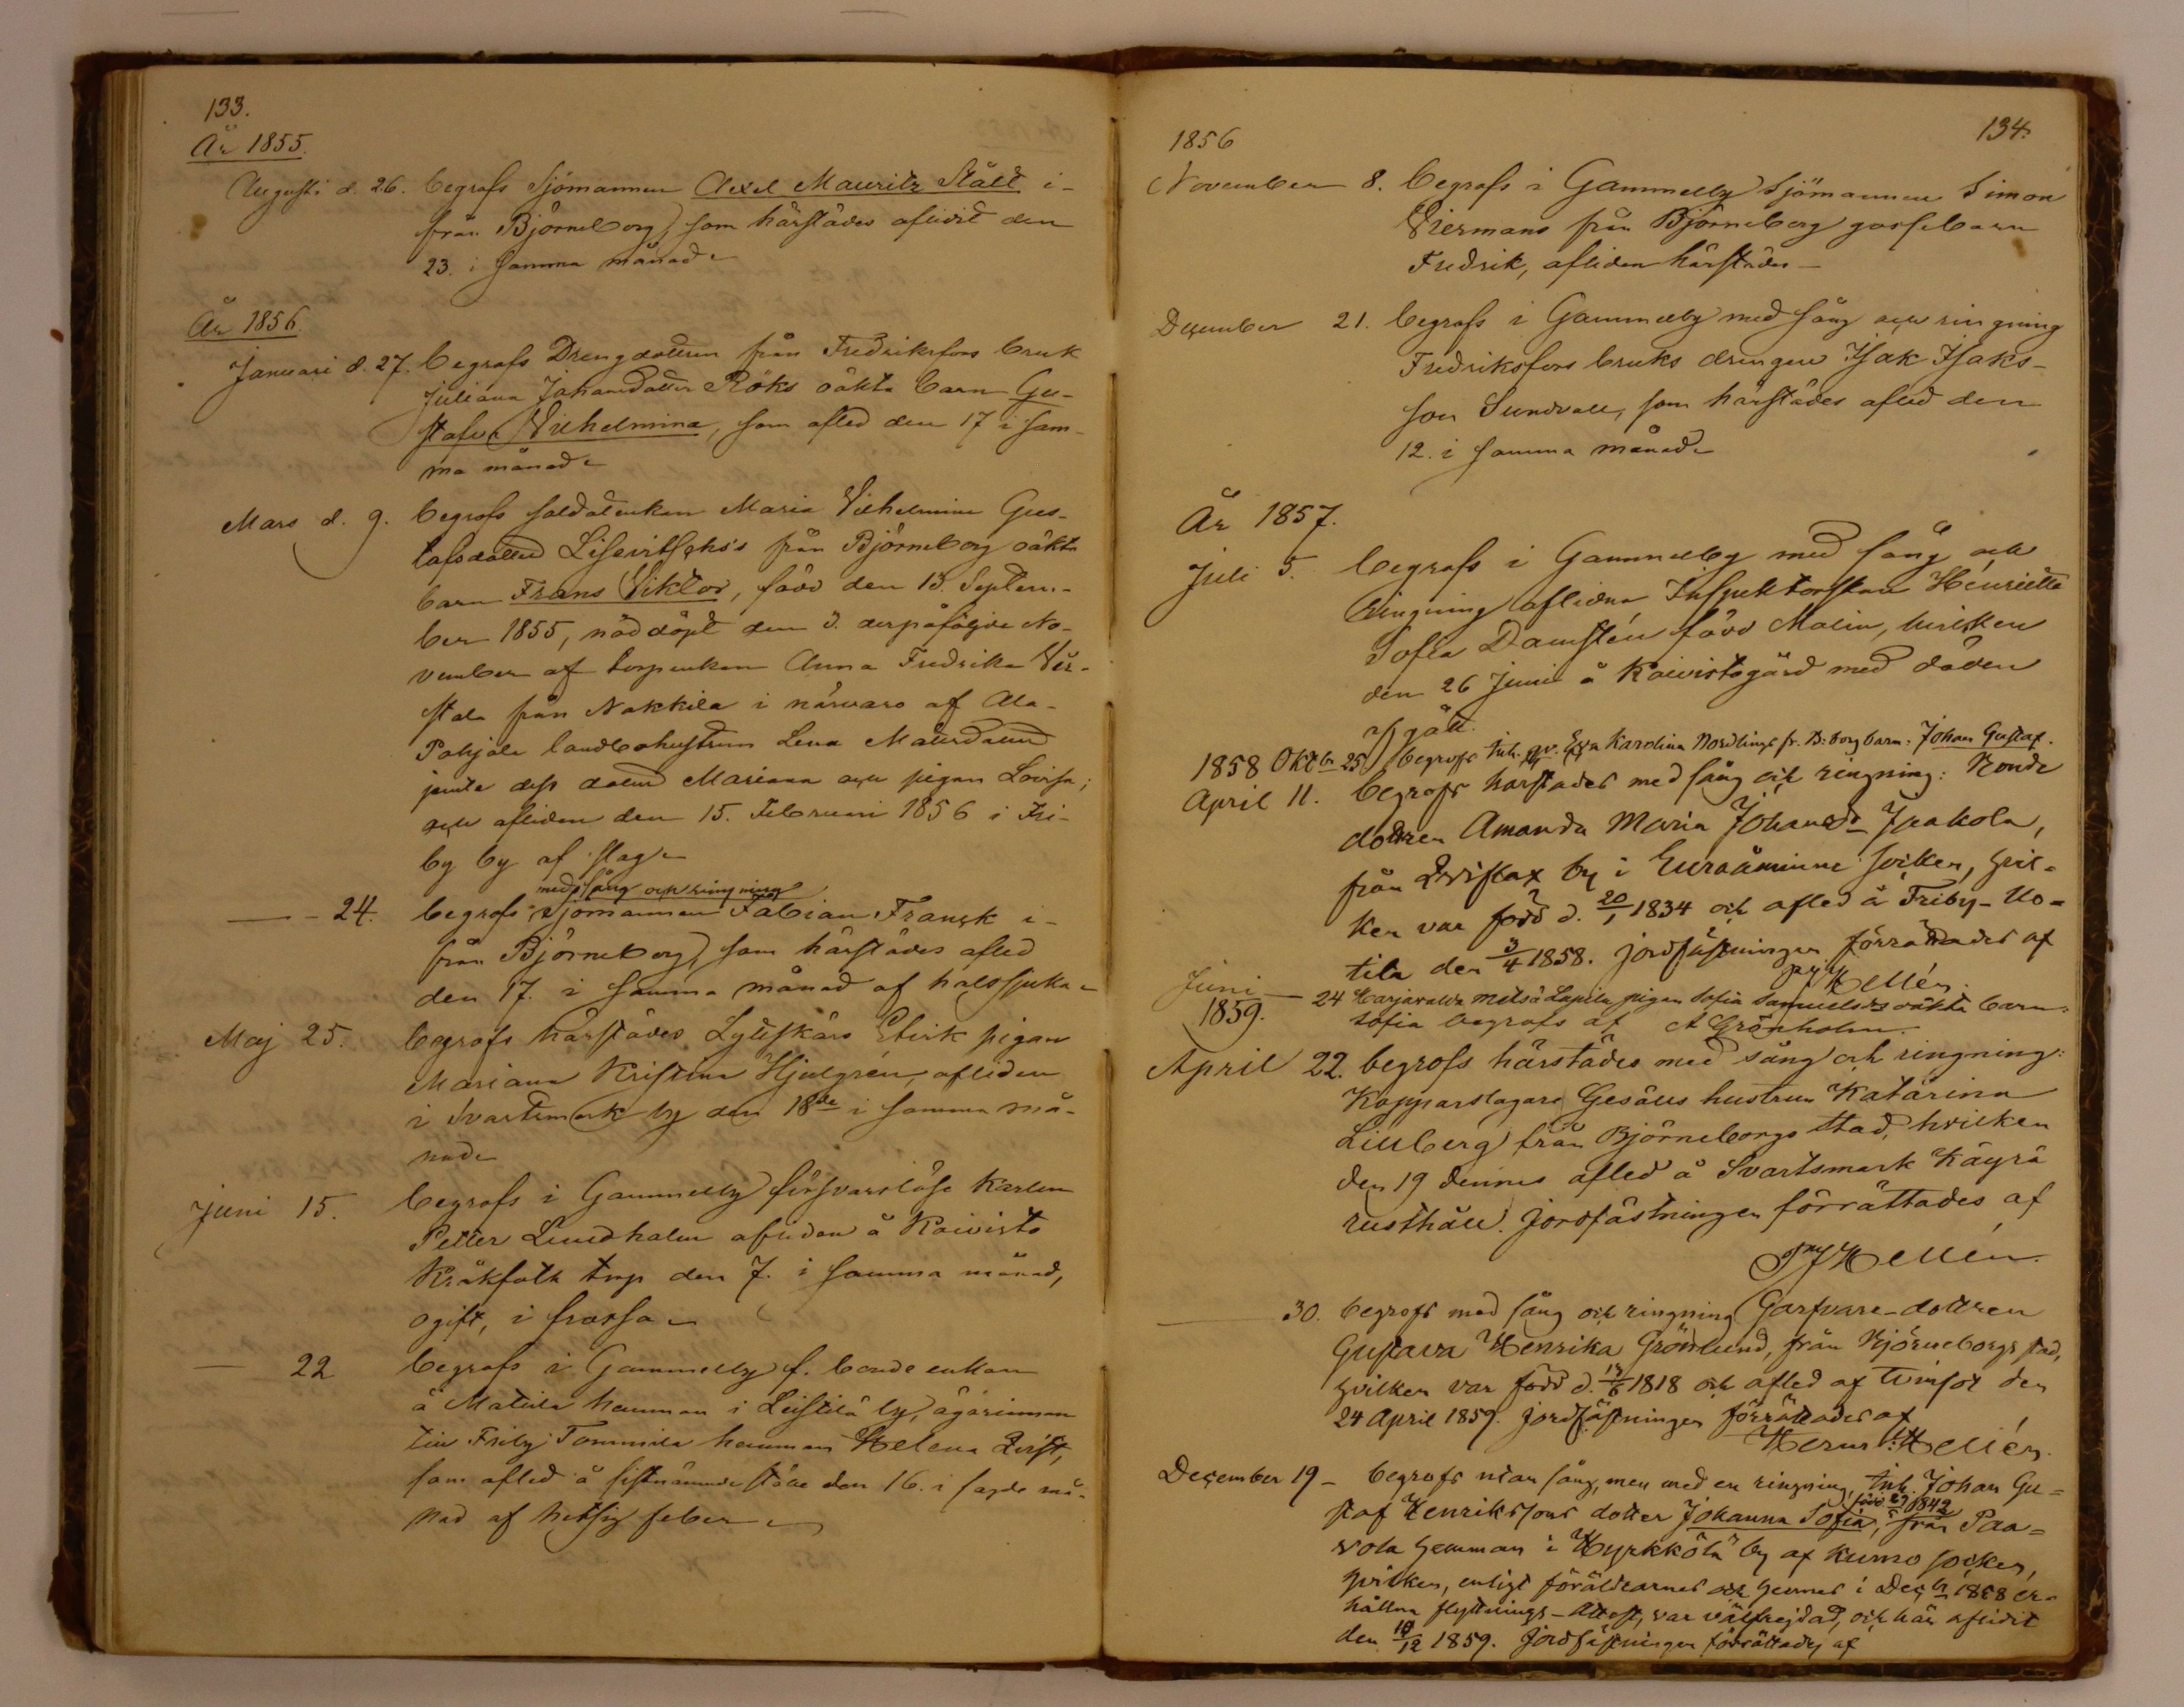 133.
År 1855.
Augusti d. 26. begrofs Sjömannen Axel Mauritz Ståll i-
från Björneborg, som härstädes aflidit den
23. i samma månad.
År 1856.
Januari d. 27. begrofs Drengdottren från Fredriksfors bruk
Juliana Johansdotter Röks oäkta barn Gu-
stafva Vilhelmina, som afled den 17 i sam-
ma månad
Mars d. 9. begrofs soldatenkan Maria Vilhelmina Gus-
tafsdotter från Björneborg oäkta
barn Frans Viktor, född den 13. Septem-
ber 1855, nöddöpt den 3. derpåföljde No-
vember af torpenkan Anna Fredrika
från Nakkila i närvaro af Ala-
Pohjala landbohustrun Lena Matsdotter
jemte dess dotter Mariana och pigan Lovisa;
och afliden den 15. Februari 1856 i Fri-
by by af slag
med sång och ringning
— 24. begrofs sjömannen Fabian Franck i-
från Björneborg, som härstädes afled
den 17. i samma månad af halssjuka
Maj 25. begrofs härstädes Lyttskärs pigan
Mariana Kristina Hjulgrén, afliden
i Svartsmark by den 18de i samma må-
nad
Juni 15. begrofs i Gammelby försvarslöse karlen
Petter Lundholm afliden å Koivisto
torp den 7. i samma månad,
ogift, i frossa
— 22 begrofs i Gammelby f. bonde enkan
å Matila hemman i Leistilä by, ägarinnan
till Friby Tommila hemman Helena Qvist,
som afled å sistnämnde ställe den 16. i sagde må-
nad af hetsig feber
134.
1856
November 8. begrofs i Gammelby Sjömannen Simon
Viermans från Björneborg gossebarn
Fredrik, afliden härstädes —
December 21. begrofs i Gammelby med sång och ringning
Fredriksfors bruks drengen Isak Isaks-
son Sundvall, som härstädes afled den
12. i samma månad
År 1857.
Juli 5. begrofs i Gammelby med sång och
ringning aflidna Inspektorskan Henriette
Sofia Damstén född Malin, hvilken
den 26 Junii å Koivistogård med döden
afgått.
1858 Oktbr 25 begrofs Inh. qv. Eva Karolina Nordlings fr. B:borg barn. Johan Gustaf.
April 11. begrofs härstädes med sång och ringning: Bonde
dottren Amanda Maria Johansdr Jaakola,
från by i Euraåminne socken, hvil-
ken var född d. 20/1 1834 och afled å Friby-Uo-
tila den 3/4 1858. Jordfästningen förrättades af
Hellén.
Juni — 24 Harjavalda Metsä Lapila pigan Sofia Samuelsdrs oäkta barn
Sofia begrofs af A Grönholm.
1859.
April 22. begrofs härstädes med sång och ringning:
Kopparslagare Gesäll hustrun Katarina
Lillberg från Björneborgs stad, hvilken
den 19 dennes afled å Svartsmark Käyrä
rusthåll. Jordfästningen förrättades af
Hellén.
— 30. begrofs med sång och ringning Garfvare-dottren
Gustava Henrika Grönlund, från Björneborgs stad,
hvilken var född d. 1818 och afled af tvinsot den
24 April 1859. Jordfästningen förrättades af
Hellén.
December 19 — begrofs utan sång, men med en ringning, Inh. Johan Gu-
staf Henrikssons dotter Johanna Sofia, född 1842 från Paa-
vola hemman i Hyrkkölä by af Kumo socken,
hvilken, enligt föräldrarnes och hennes i Decbr 1858 er-
hållna flyttnings-attest, var välfrejdad, och här aflidit
den 10/12 1859. Jordfästningen förrättades af